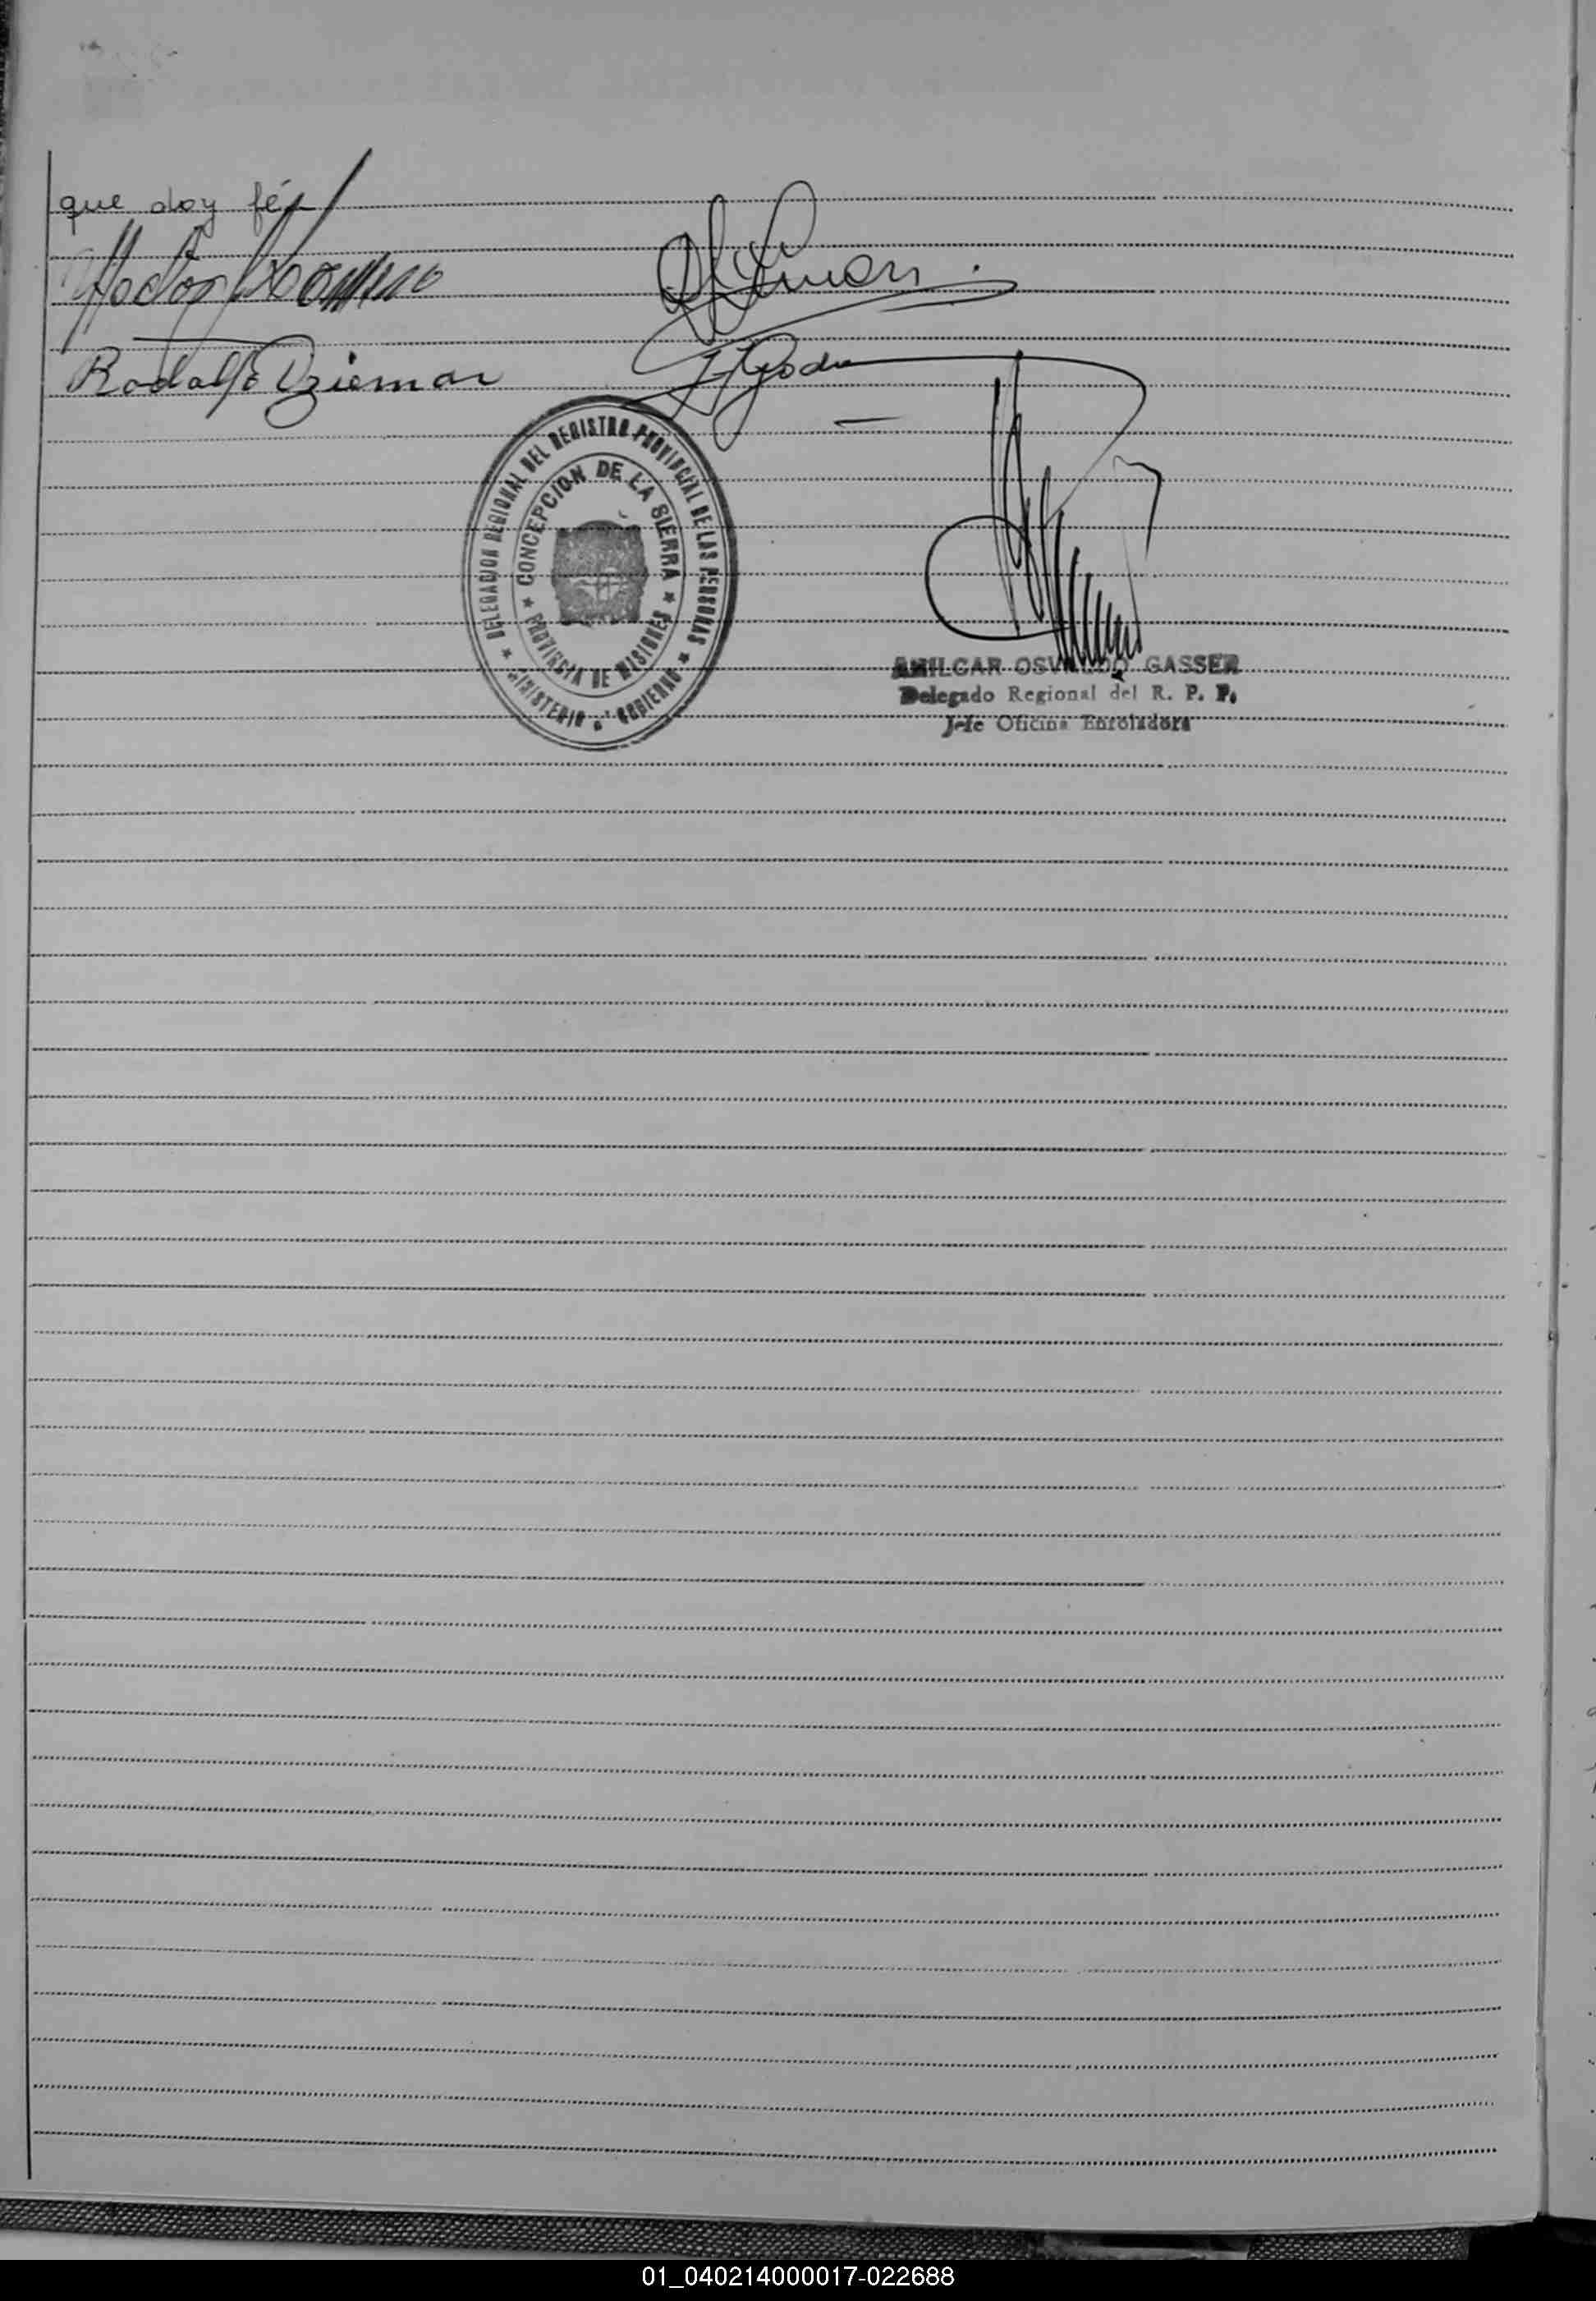 que doy fé
Rodolfo Dziemar
DELEGACION REGIONAL DEL REGISTRO PROVINCIAL DE LAS PERSONAS
CONCEPCION DE LA SIERRA
PROVINCIA DE MISIONES
MINISTERIO DE GOBIERNO
AMILCAR OSVALDO GASSER
Delegado Regional del R. P. P.
Jefe Oficina Enroladora
01_040214000017-022688